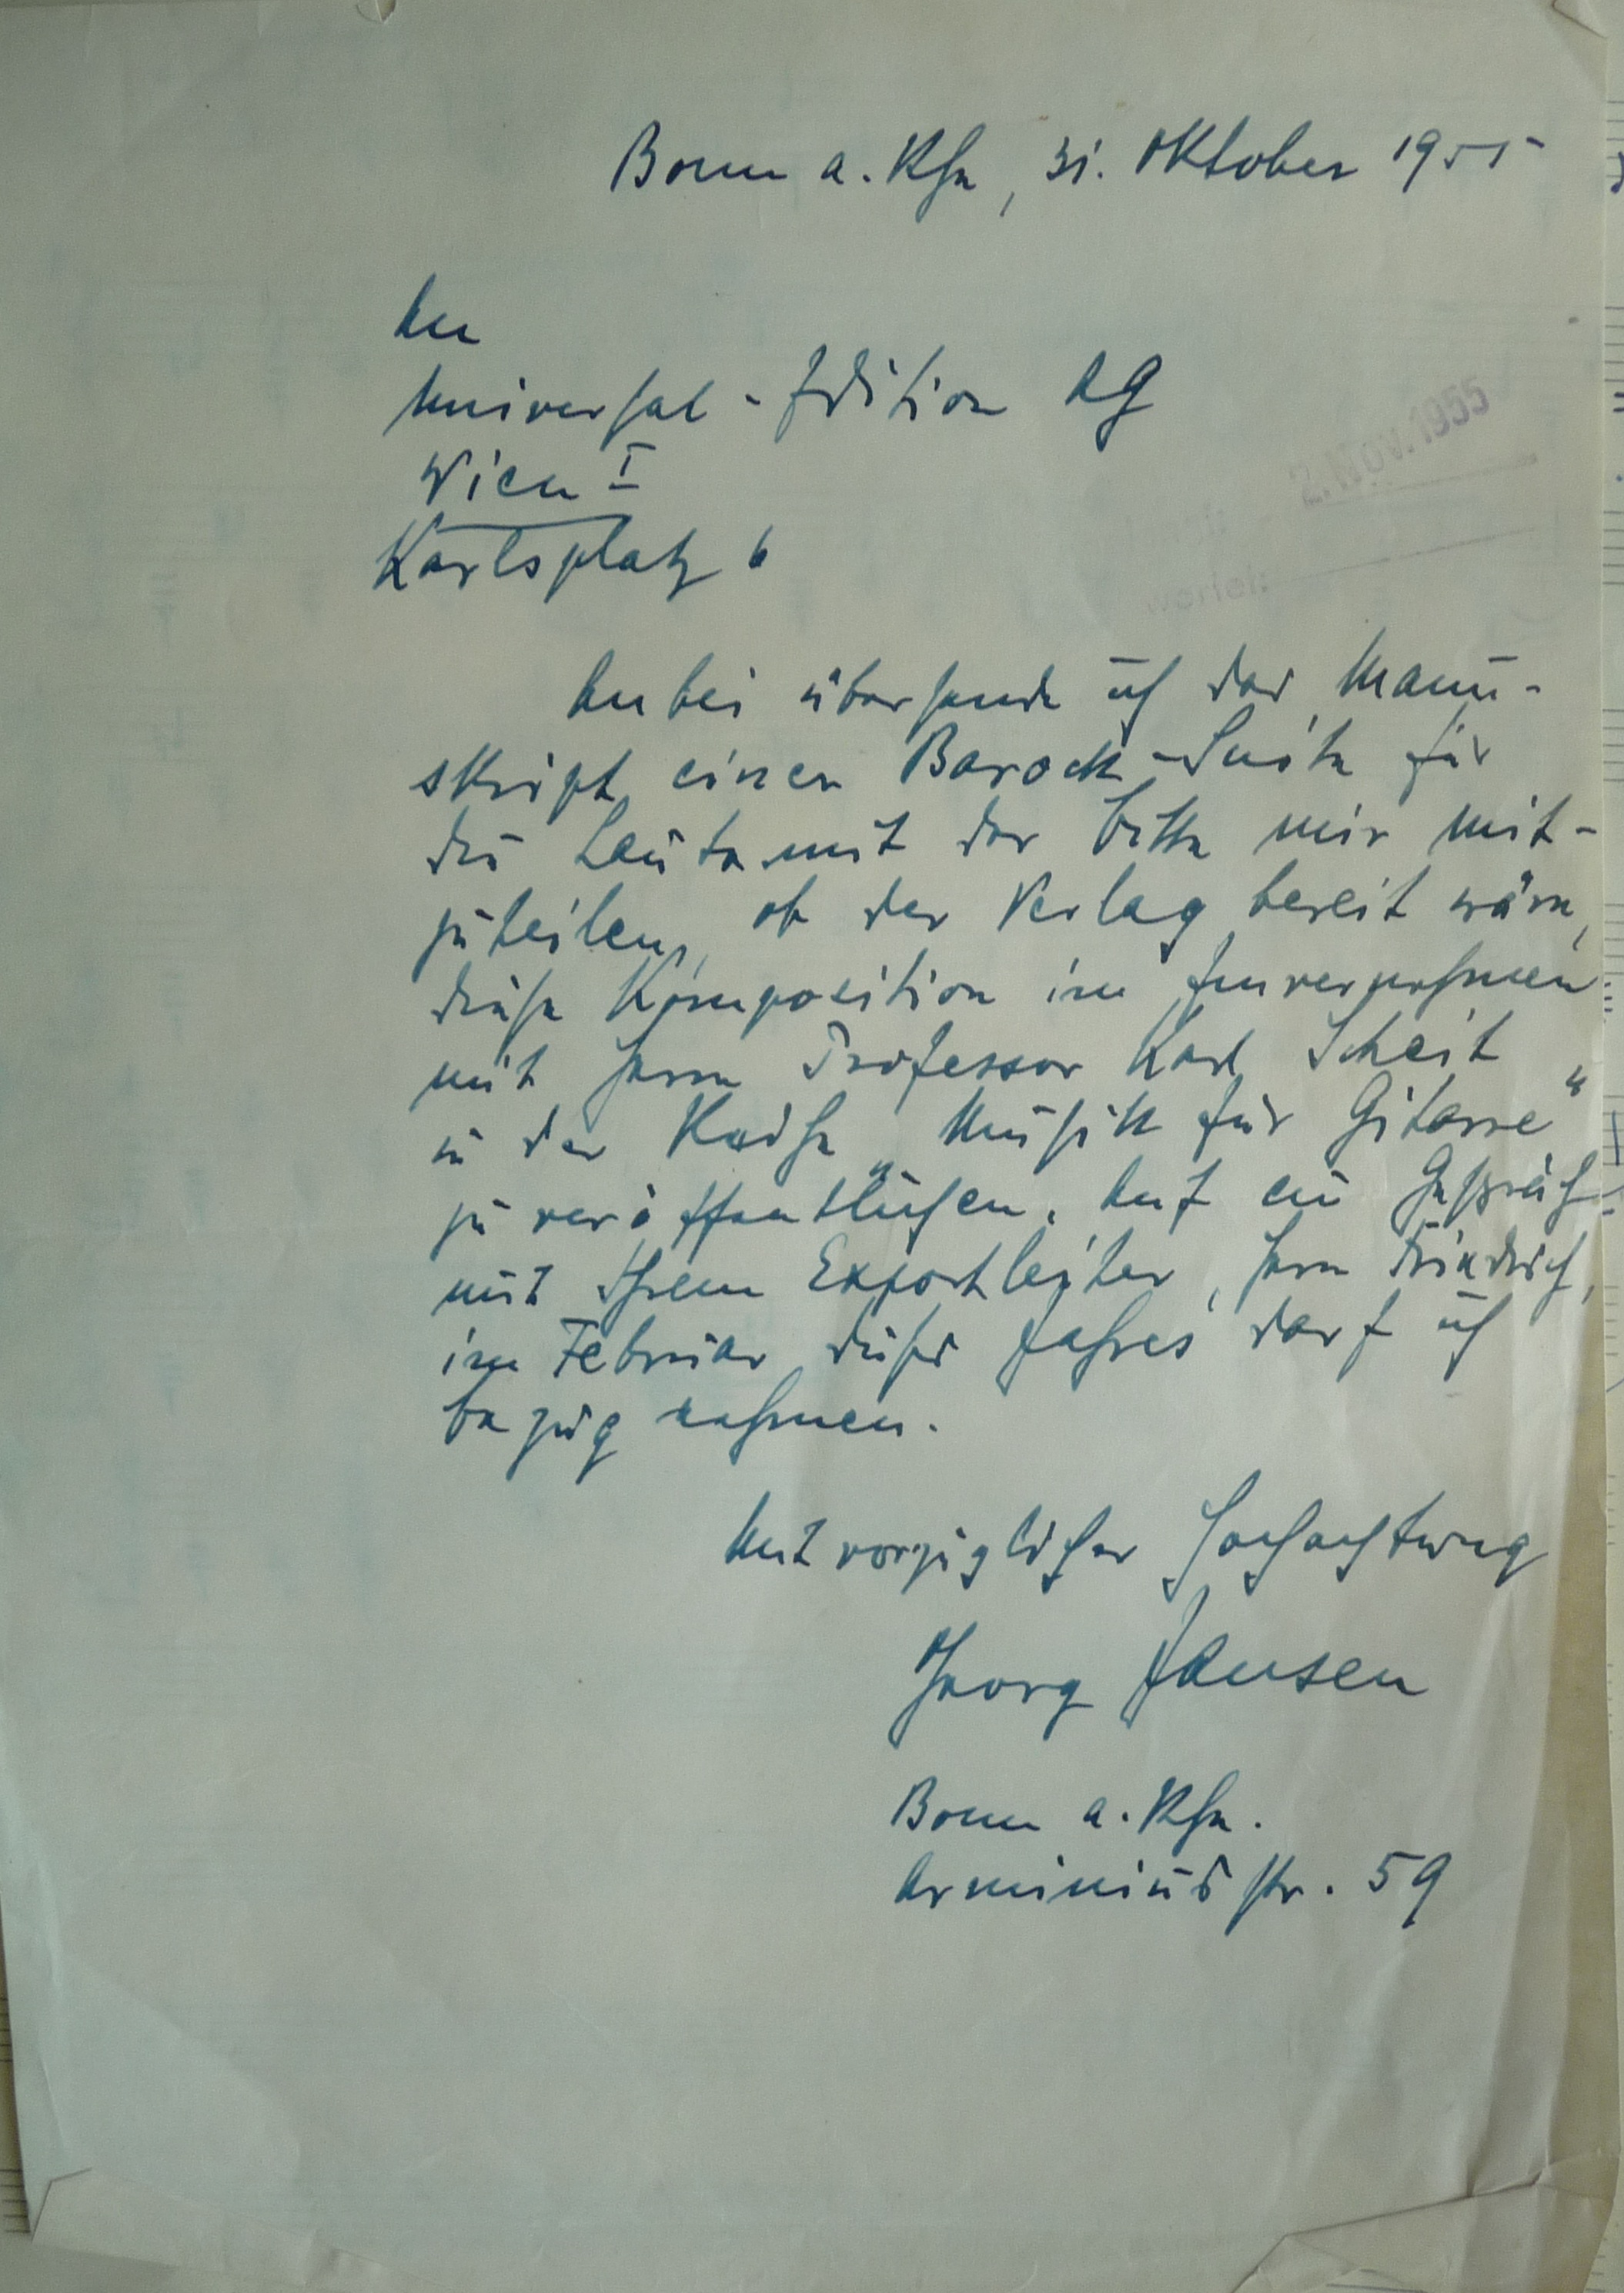 Bonn a. Rhn, 31. Oktober 1955
2. NOV. 1955
An
Universal-Edition AG
Wien I
Karlsplatz 6
Anbei übersende ich das Manu-
skript einer Barock-Suite für
die Laute mit der Bitte mir mit-
zuteilen, ob der Verlag bereit wäre,
diese Komposition im Einvernehmen
mit Herrn Professor Karl Scheit
in der Reihe „Musik für Gitarre“
zu veröffentlichen. Auf ein Gespräch
mit Ihrem Exportleiter, Herrn
im Februar dieses Jahres darf ich
bezug nehmen.
Mit vorzüglicher Hochachtung
Georg Jansen
Bonn a. Rhn.
Arminiusstr. 59